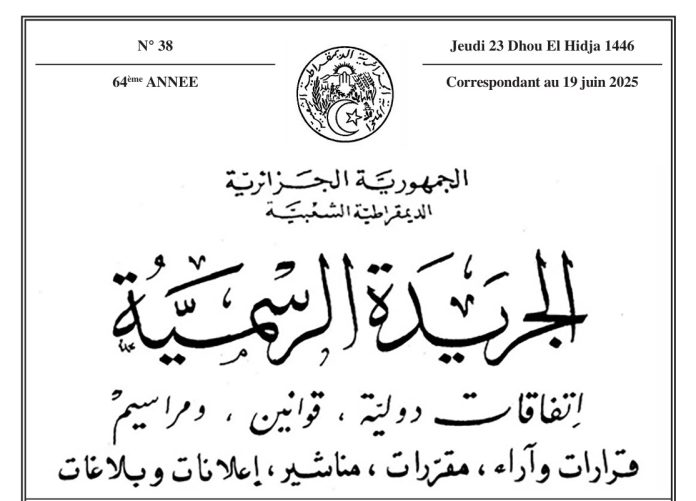 N° 38
Jeudi 23 Dhou El Hidja 1446
64ème ANNEE
Correspondant au 19 juin 2025
الجمهوريّة الجزائريّة
الديمقراطيّة الشعبيّة
الجريدة الرسميّة
إتفاقات دوليّة ، قوانين ، ومراسيم
قرارات وآراء ، مقرّرات ، مناشير ، إعلانات وبلاغات